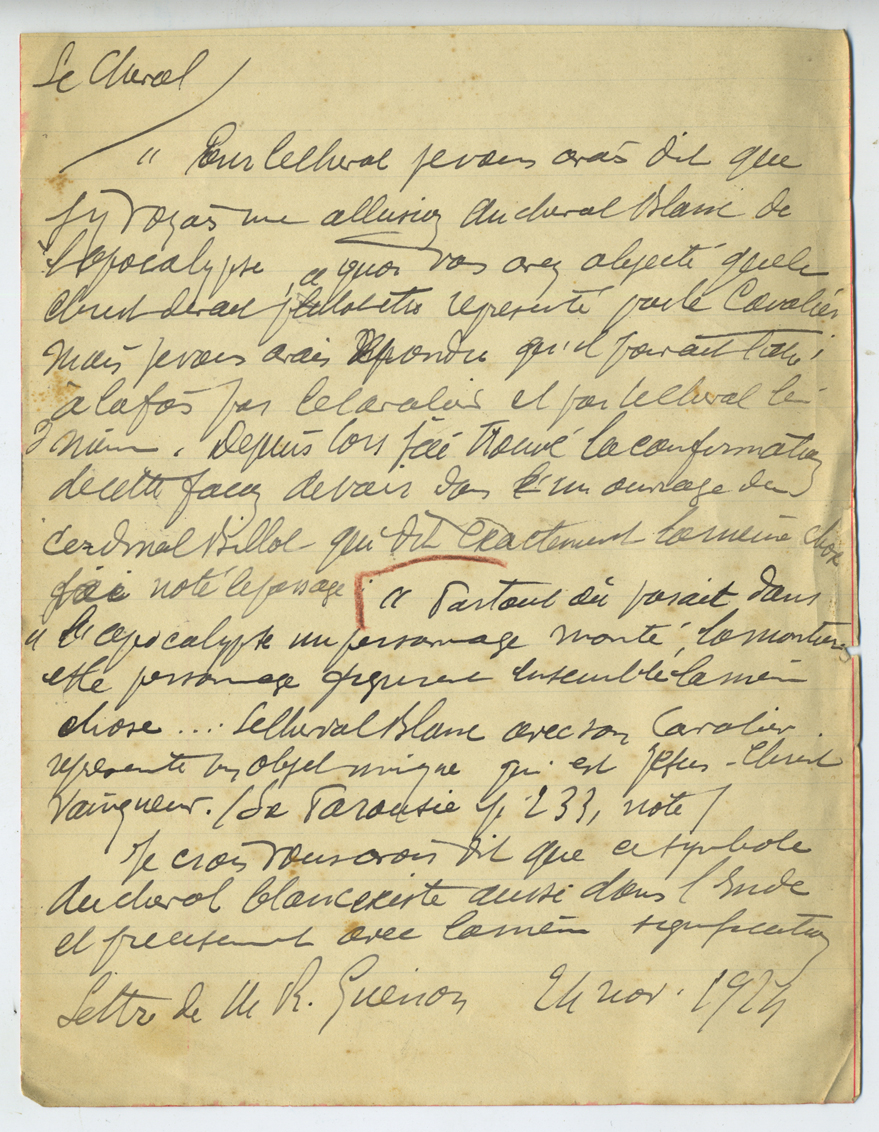 Le Cheval
" Pour le cheval je vous avais dit que
j'y voyais une allusion au cheval Blanc de
l'apocalypse, à quoi vous avez objecté que le
Christ devait plutot etre représenté par le Cavalier
mais je vous avais répondu qu'il pouvait l'etre
à la fois par le cavalier et par le cheval lui
même. Depuis lors j'ai trouvé la confirmation
de cette façon de voir dans un ouvrage du
Cardinal Billot qui dit exactement la même chose
j'ai noté le passage : " Partout où parait dans
" l'apocalypse un personnage monté, la monture
et le personnage figurent ensemble la même
chose .... Le cheval Blanc avec son Cavalier
represente un objet unique qui est Jésus-Christ
Vainqueur. (La Parousie p. 233, note)
Je crois vous avoir dit que ce symbole
du cheval blanc existe aussi dans l'Inde
et precisement avec la même signification
Lettre de M R. Guénon 24 nov. 1924